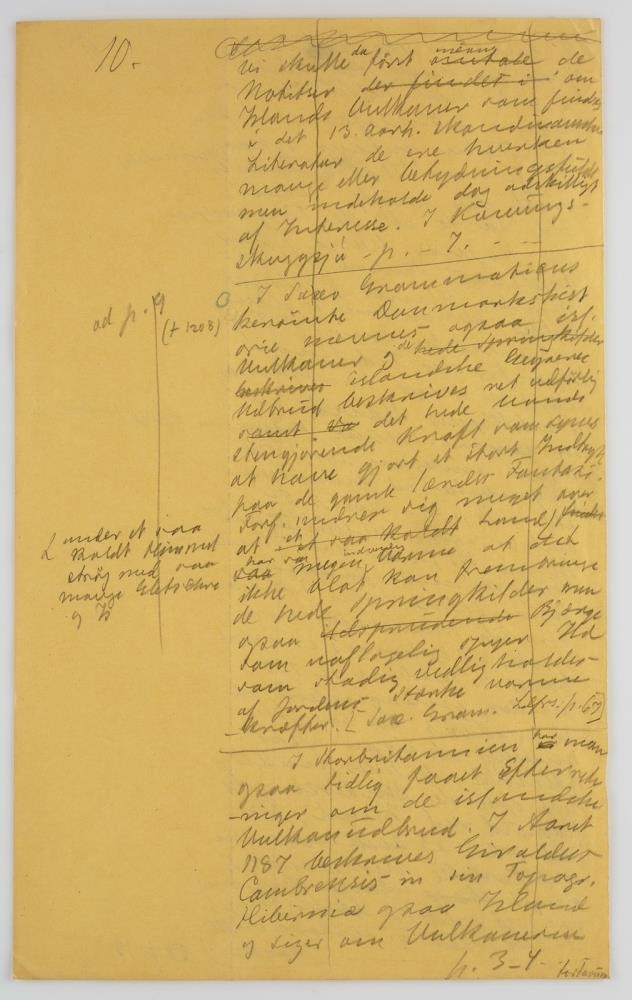 10.
vi skulle da først omtale de
Notitser der findes i om
Islands Vulkaner som findes
i det 13. aarh. skandinaviske
Literatur de ere hverken
mange eller betydningsfulde
men indeholde dog adskilligt
af Interesse. I Konungs-
skuggsjá - p. - 7. - -
ad p. 9
(† 1208)
I Saxo Grammaticus
berömte Danmarkshist
orie nævnes ogsaa isl.
Vulkaner og de hede Springkilder
beskrives islandske
Udbrud beskrives ret udførlig
samt det hede Vands
stengjörende Kraft som synes
at have gjort et stort Indtryk
paa de gamle Fantasi.
Forf. undrer sig meget over
at et saa koldt Land
har saa megen indvortes Varme at den
ikke blot kan frembringe
de hede Springkilder men
ogsaa ildsprudende Bjærge
som uaflagelig spyer Ild
som stadig vedligholdes
af Jordens stærke varme
Kræfter. [Sax. Gram. p. 67]
under et saa
koldt Himmel
strøg med saa
mange Gletschere
og Is
I Storbritannien har man
ogsaa tidlig faaet Efterret-
ninger om de islandske
Vulkanudbrud. I Aaret
1187 beskrives Giraldus
Cambrensis in sin Topogr.
Hiberniæ ogsaa Island
og siger om Vulkanerne
p. 3-4.